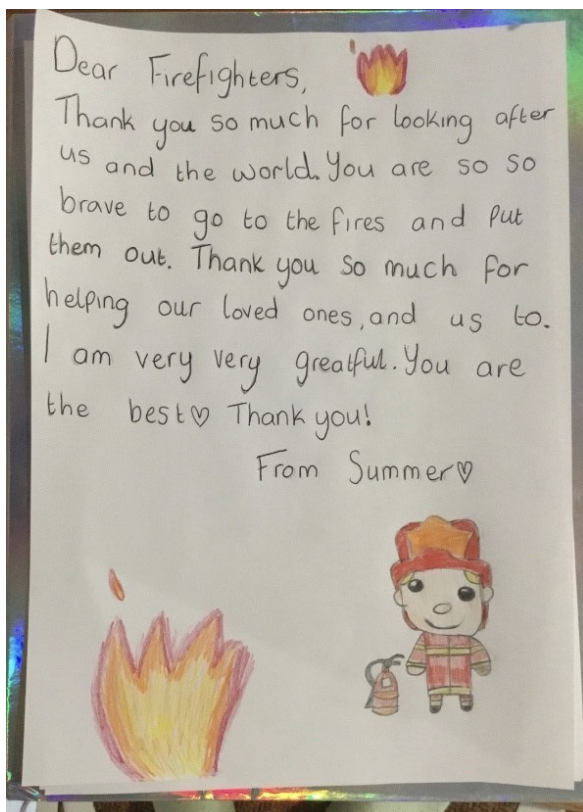 Dear Firefighters,
Thank you so much for looking after
us and the world. You are so so
brave to go to the fires and put
them out. Thank you so much for
helping our loved ones, and us to.
I am very very greatful. You are
the best♡ Thank you!
From Summer♡